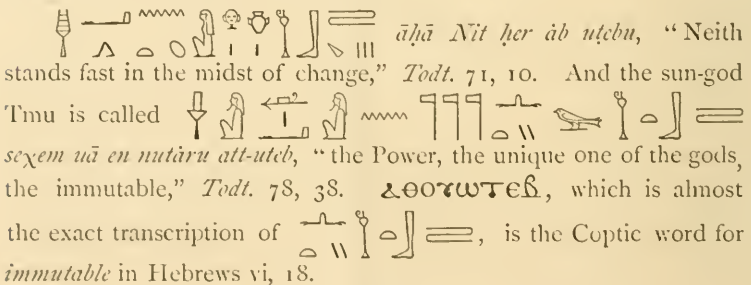 āḥā Nit ḥer ȧb uṭebu, “Neith
stands fast in the midst of change,” Todt. 71, 10. And the sun-god
Tmu is called
seχem uā en nutȧru att-uteb, “the Power, the unique one of the gods,
the immutable,” Todt. 78, 38. ⲁⲑⲟⲩⲱⲧⲉⲃ, which is almost
the exact transcription of , is the Coptic word for
immutable in Hebrews vi, 18.